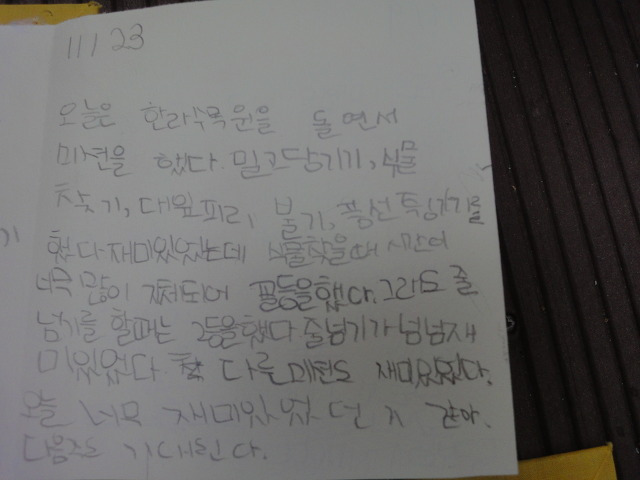 11 1 23
오늘은 한라수목원을 돌면서
미션을 했다. 밀고당기기, 식물
찾기, 대잎피리, 불기, 풍선 튕기기를
했다 재미있었는데 식물찾을때 시간이
너무 많이 지체되어 꼴등을했다. 그래도 줄
넘기를 할때는 2등을했다 줄넘기가 넘넘재
미있었다 참 다른미션도 재미있었다.
오늘 너무 재미있었던 거 같아.
다음주도 기대된다.
기